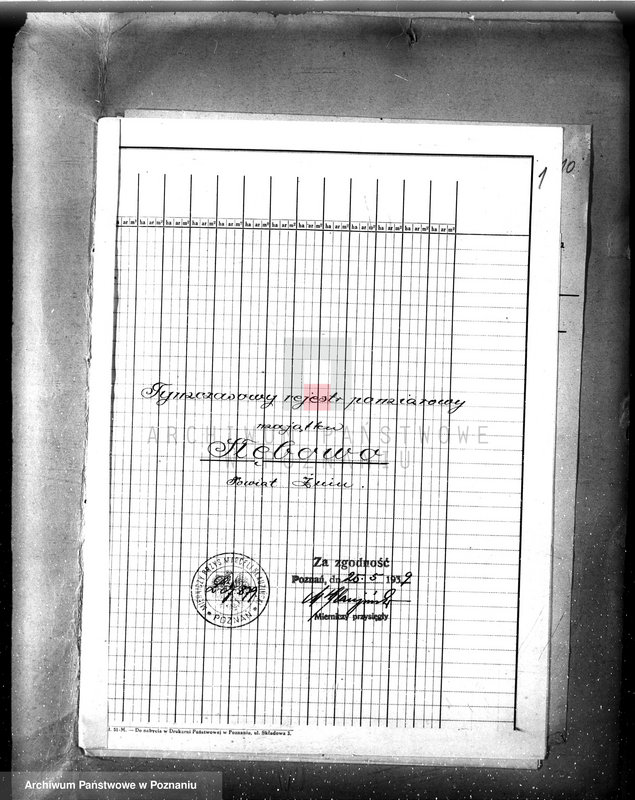 1
10
ar m² ha ar m² ha ar m² ha ar m² ha ar m² ha ar m² ha ar m² ha ar m² ha ar m² ha ar m² ha ar m² ha ar m² ha ar m²
Tymczasowy rejestr pomiarowy
majątku
ARCHIWUM PAŃSTWOWE
W POZNANIU
Powiat Żnin.
Za zgodność
Poznań, dn. 25.5 1932
Mierniczy przysięgły
MIERNICZY PRZYS.
POZNAŃ
J. 51-M. — Do nabycia w Drukarni Państwowej w Poznaniu, ul. Składowa 5.
Archiwum Państwowe w Poznaniu